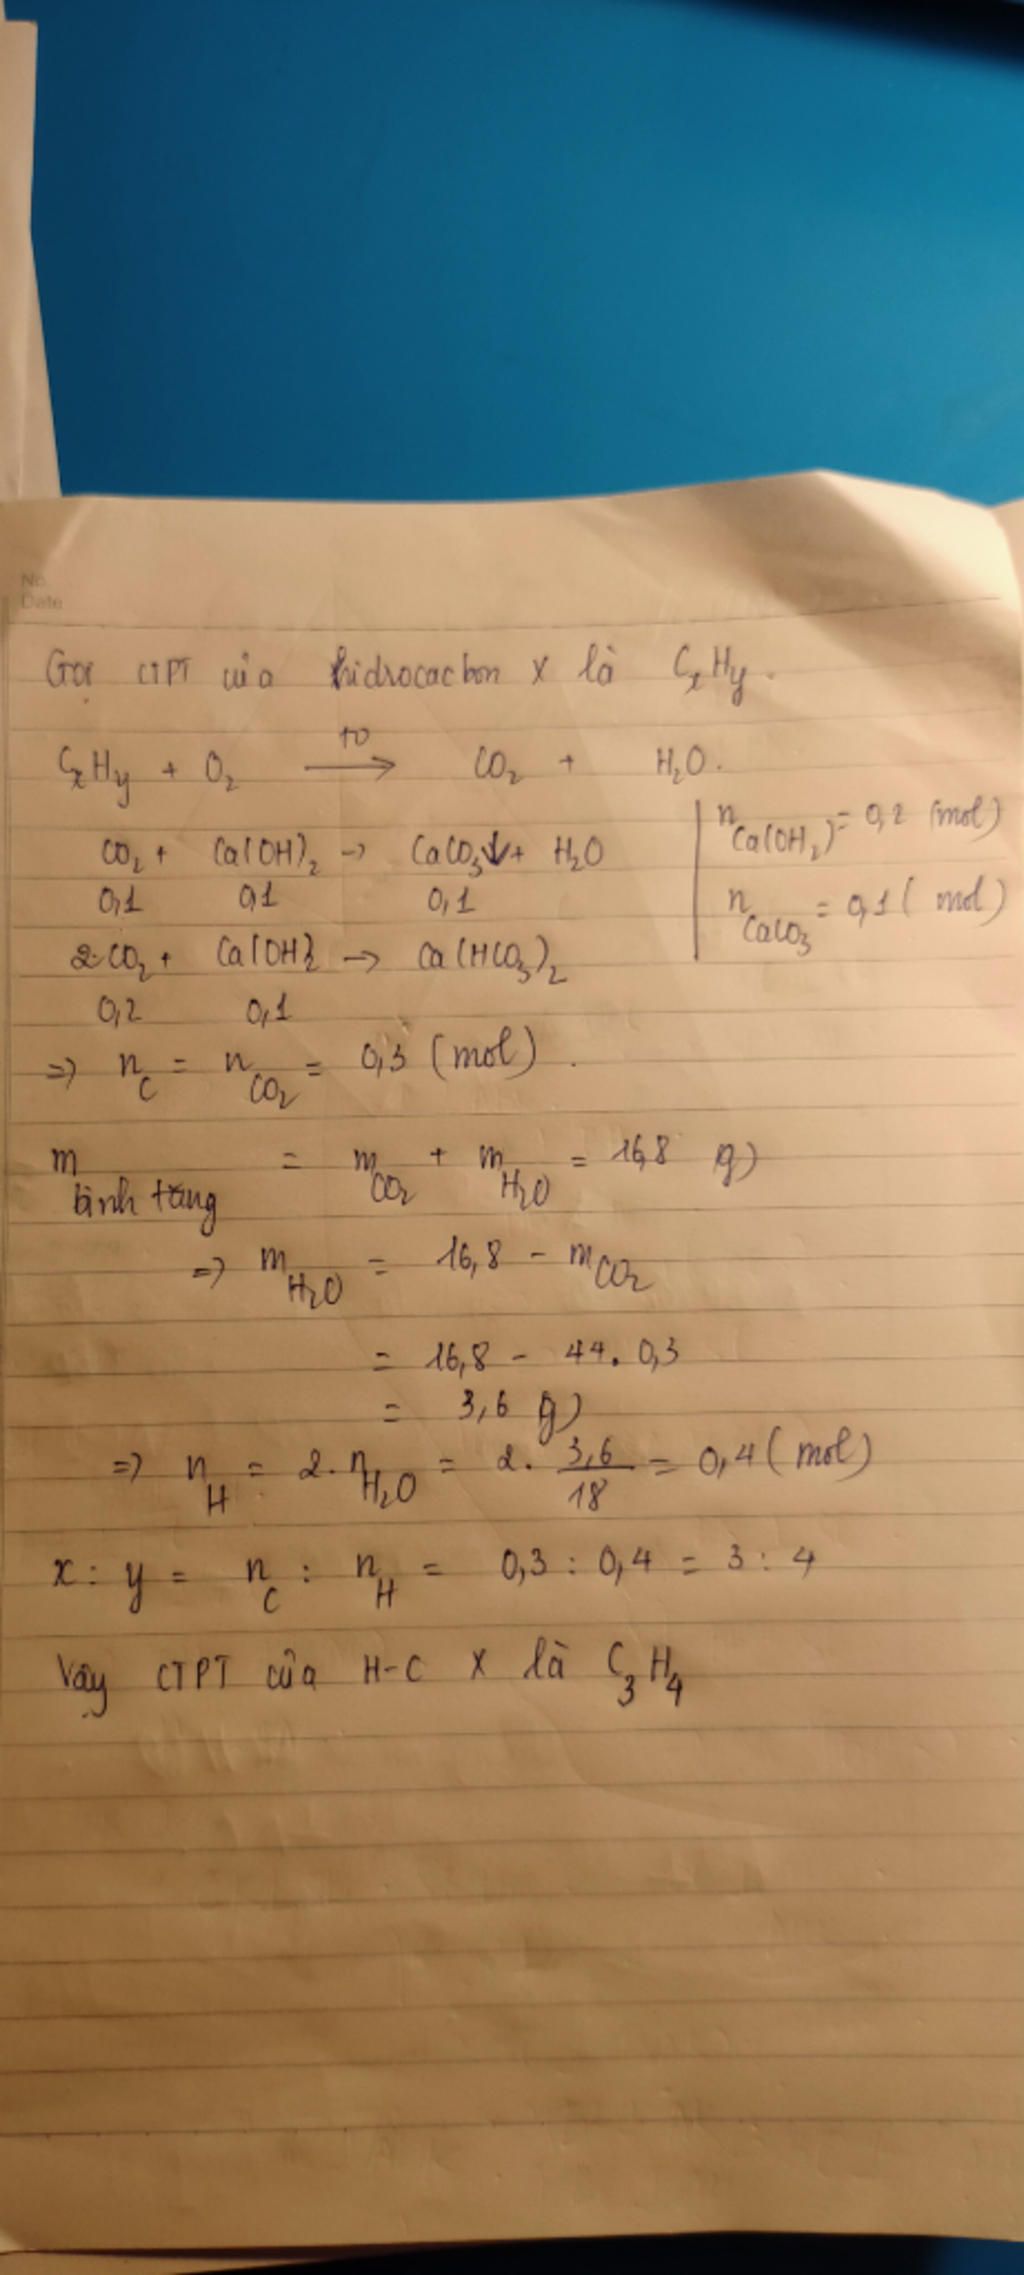 No.
Date
Gọi CTPT của hidrocacbon X là CxHy.
CxHy + O₂ →(t°) CO₂ + H₂O.
CO₂ + Ca(OH)₂ → CaCO₃↓ + H₂O
0,1 0,1 0,1
2CO₂ + Ca(OH)₂ → Ca(HCO₃)₂
0,2 0,1
n Ca(OH₂) = 0,2 (mol)
n CaCO₃ = 0,1 (mol)
=> n C = n CO₂ = 0,3 (mol).
m bình tăng = m CO₂ + m H₂O = 16,8 g)
=> m H₂O = 16,8 - m CO₂
= 16,8 - 44. 0,3
= 3,6 g)
=> n H = 2. n H₂O = 2. 3,6/18 = 0,4 (mol)
x : y = n C : n H = 0,3 : 0,4 = 3 : 4
Vậy CTPT của H-C X là C₃H₄